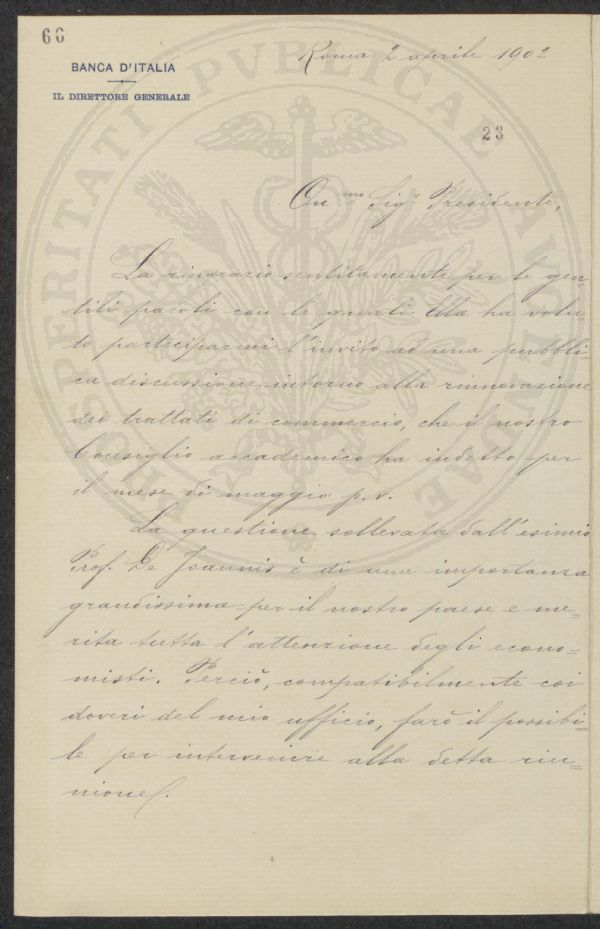 66
BANCA D'ITALIA
IL DIRETTORE GENERALE
Roma 2 aprile 1902
23
On.mo Sigr Presidente,
La ringrazio sentitamente per le gen=
tili parole con le quali Ella ha volu=
to parteciparmi l'invito ad una pubbli=
ca discussione intorno alla rinnovazione
dei trattati di commercio, che il nostro
Consiglio accademico ha indetto per
il mese di maggio p.v.
La questione sollevata dall'esimio
Prof. De Joannis è di una importanza
grandissima per il nostro paese e me=
rita tutta l'attenzione degli econo=
misti. Perciò, compatibilmente coi
doveri del mio ufficio, farò il possibi=
le per intervenire alla detta riu=
nione.
PROSPERITATI PVBLICAE AVGENDAE